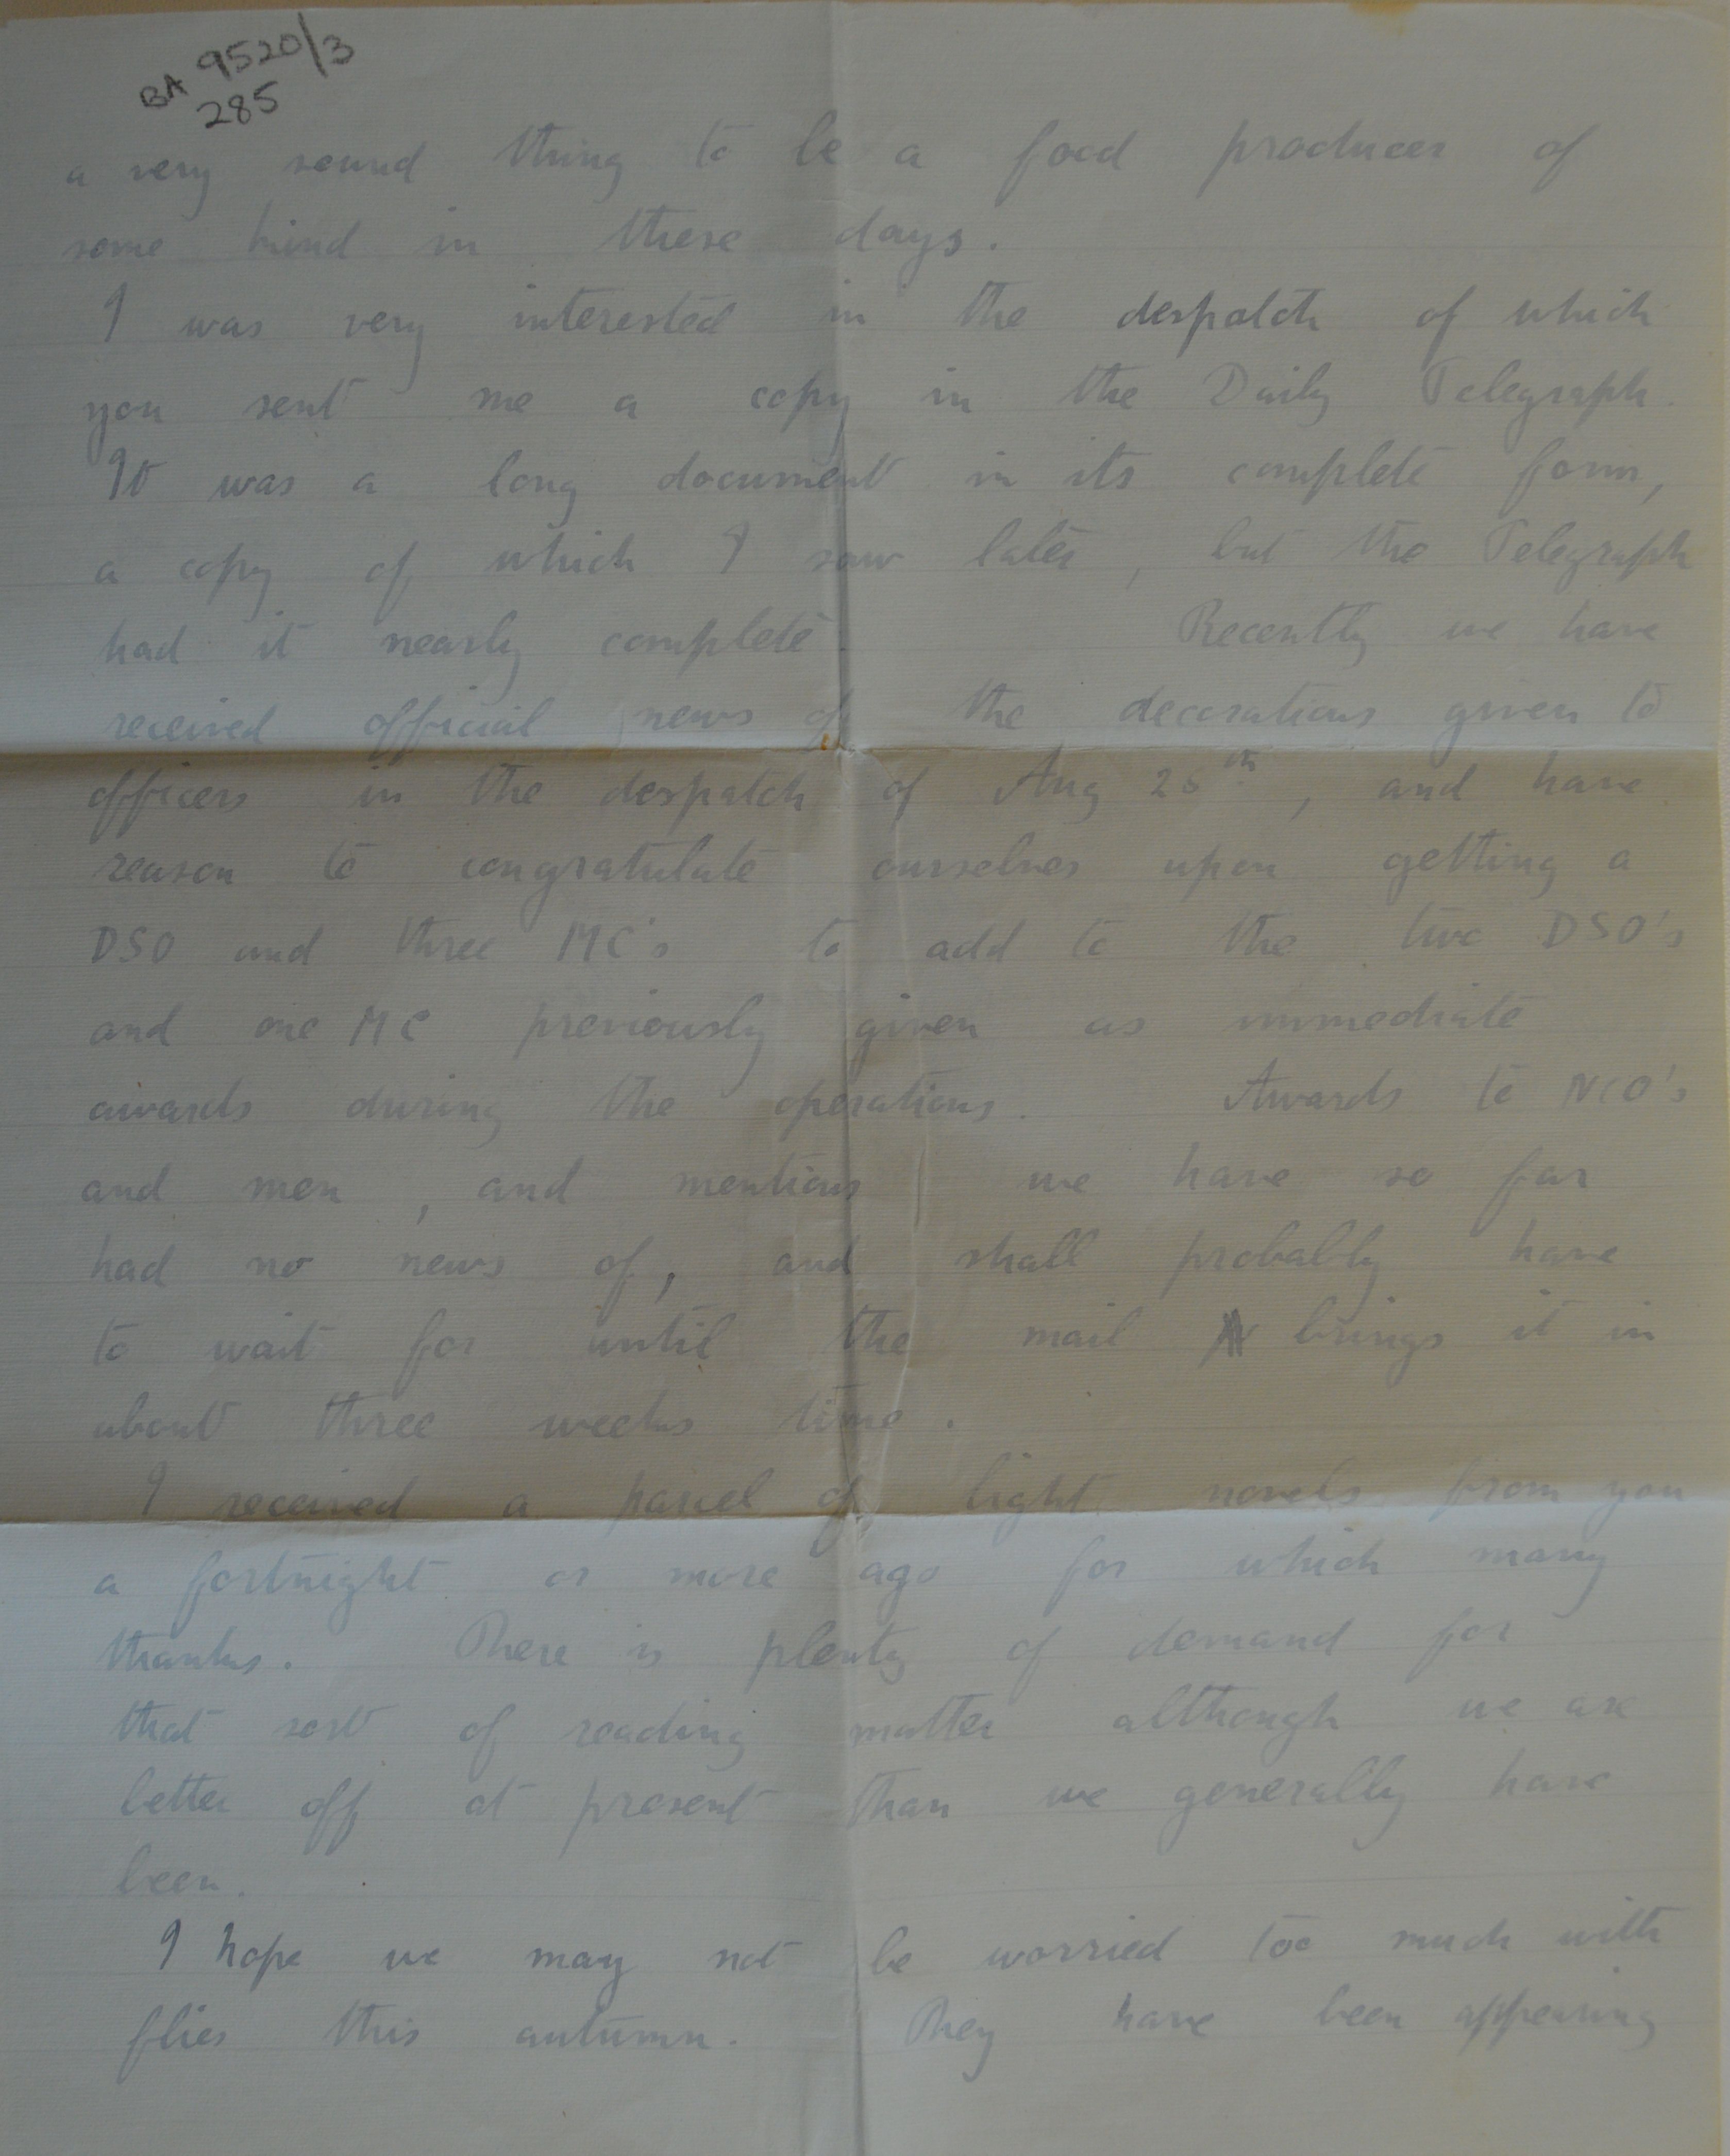 BA 9520/3
285
a very sound thing to be a food producer of
some kind in these days.
I was very interested in the despatch of which
you sent me a copy in the Daily Telegraph.
It was a long document in its complete form,
a copy of which I saw later, but the Telegraph
had it nearly complete. Recently we have
received official news of the decorations given to
officers in the despatch of Aug 25th, and have
reason to congratulate ourselves upon getting a
DSO and three MC's to add to the two DSO's
and one MC previously given as immediate
awards during the operations. Awards to NCO's
and men, and mentions we have so far
had no news of, and shall probably have
to wait for until the mail brings it in
about three weeks time.
I received a parcel of light novels from you
a fortnight or more ago for which many
thanks. There is plenty of demand for
that sort of reading matter although we are
better off at present than we generally have
been.
I hope we may not be worried too much with
flies this autumn. They have been appearing